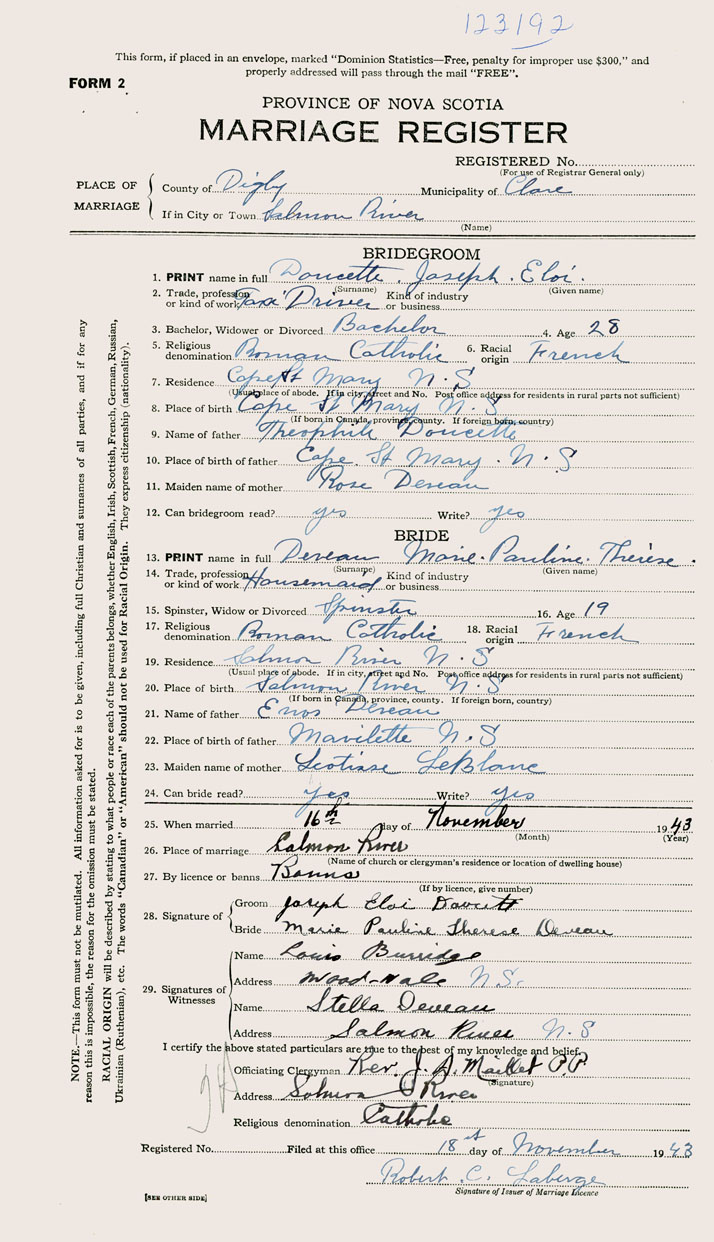 123192
This form, if placed in an envelope, marked "Dominion Statistics—Free, penalty for improper use $300," and
properly addressed will pass through the mail "FREE".
FORM 2
PROVINCE OF NOVA SCOTIA
MARRIAGE REGISTER
REGISTERED No.
(For use of Registrar General only)
PLACE OF MARRIAGE
County of Digby Municipality of Clare
If in City or Town Salmon River
(Name)
BRIDEGROOM
1. PRINT name in full Doucette, Joseph. Eloi.
(Surname) (Given name)
2. Trade, profession or kind of work Taxi Driver Kind of industry or business
3. Bachelor, Widower or Divorced Bachelor 4. Age 28
5. Religious denomination Roman Catholic 6. Racial origin French
7. Residence Cape St Mary N.S
(Usual place of abode. If in city, street and No. Post office address for residents in rural parts not sufficient)
8. Place of birth Cape St Mary N.S
(If born in Canada, province, county. If foreign born, country)
9. Name of father Theophile Doucette
10. Place of birth of father Cape. St Mary. N.S
11. Maiden name of mother Rose Deveau
12. Can bridegroom read? yes Write? yes
BRIDE
13. PRINT name in full Deveau Marie. Pauline. Therese.
(Surname) (Given name)
14. Trade, profession or kind of work Housemaid Kind of industry or business
15. Spinster, Widow or Divorced Spinster 16. Age 19
17. Religious denomination Roman Catholic 18. Racial origin French
19. Residence Salmon River N.S
(Usual place of abode. If in city, street and No. Post office address for residents in rural parts not sufficient)
20. Place of birth Salmon River N.S
(If born in Canada, province, county. If foreign born, country)
21. Name of father Enos Deveau
22. Place of birth of father Mavilette N.S
23. Maiden name of mother LeBlanc
24. Can bride read? yes Write? yes
25. When married 16th day of November 1943
(Month) (Year)
26. Place of marriage Salmon River
(Name of church or clergyman's residence or location of dwelling house)
27. By licence or banns Banns
(If by licence, give number)
28. Signature of
Groom Joseph Eloi Doucett
Bride Marie Pauline Therese Deveau
29. Signatures of Witnesses
Name Louis Burridge
Address N.S.
Name Stella Deveau
Address Salmon River N.S
I certify the above stated particulars are true to the best of my knowledge and belief.
Officiating Clergyman Rev. J. A. Maillet P.P.
(Signature)
Address Salmon River
Religious denomination Catholic
Registered No. Filed at this office 18 day of November 1943
Robert C. Laberge
Signature of Issuer of Marriage Licence
[SEE OTHER SIDE]
NOTE.—This form must not be mutilated. All information asked for is to be given, including full Christian and surnames of all parties, and if for any
reason this is impossible, the reason for the omission must be stated.
RACIAL ORIGIN will be described by stating to what people or race each of the parents belongs, whether English, Irish, Scottish, French, German, Russian,
Ukrainian (Ruthenian), etc. The words "Canadian" or "American" should not be used for Racial Origin. They express citizenship (nationality).